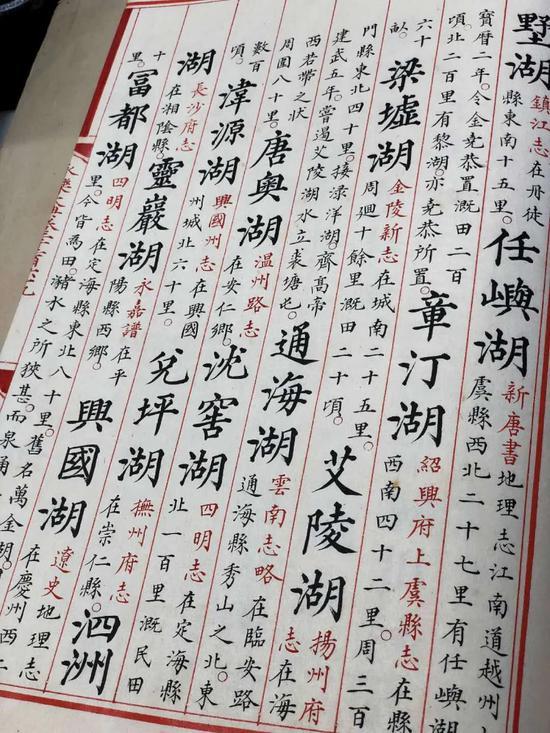 墅湖
鎮江志在丹徒
縣東南十五里。
任嶼湖
新唐書地理志江南道越州
虞縣西北二十七里有任嶼湖
寶曆二年。令金堯恭置溉田二百
頃。北二百里有黎湖。亦堯恭所置。
章汀湖
紹興府上虞縣志在縣
西南四十二里。周三百
六十
畝。
梁墟湖
金陵新志在城南二十五里。
周廻十餘里溉田二十頃。
艾陵湖
揚州府
志在海
門縣東北四十里。接淥洋湖。齊高帝
建武五年。嘗遏艾陵湖水立裘塘屯
通海湖
雲南志略在臨安路
通海縣秀山之北。東
西若帶之狀
周圍八十里。
唐奥湖
温州路志
在安仁鄉。
沈窖湖
四明志在定海縣
北一百里溉民田
數百
頃。
湋源湖
興國州志在興國
州城北六十里。
兌坪湖
撫州府志
在崇仁縣。
泗洲
湖
長沙府志
在湘陰縣。
靈巖湖
永嘉譜在平
陽縣西鄉。
興國湖
遼史地理志
在慶州西二
十
里。
富都湖
四明志在定海縣東北八十里。舊名萬金湖。
里。今皆為田。瀦水之所狹甚。而泉涌